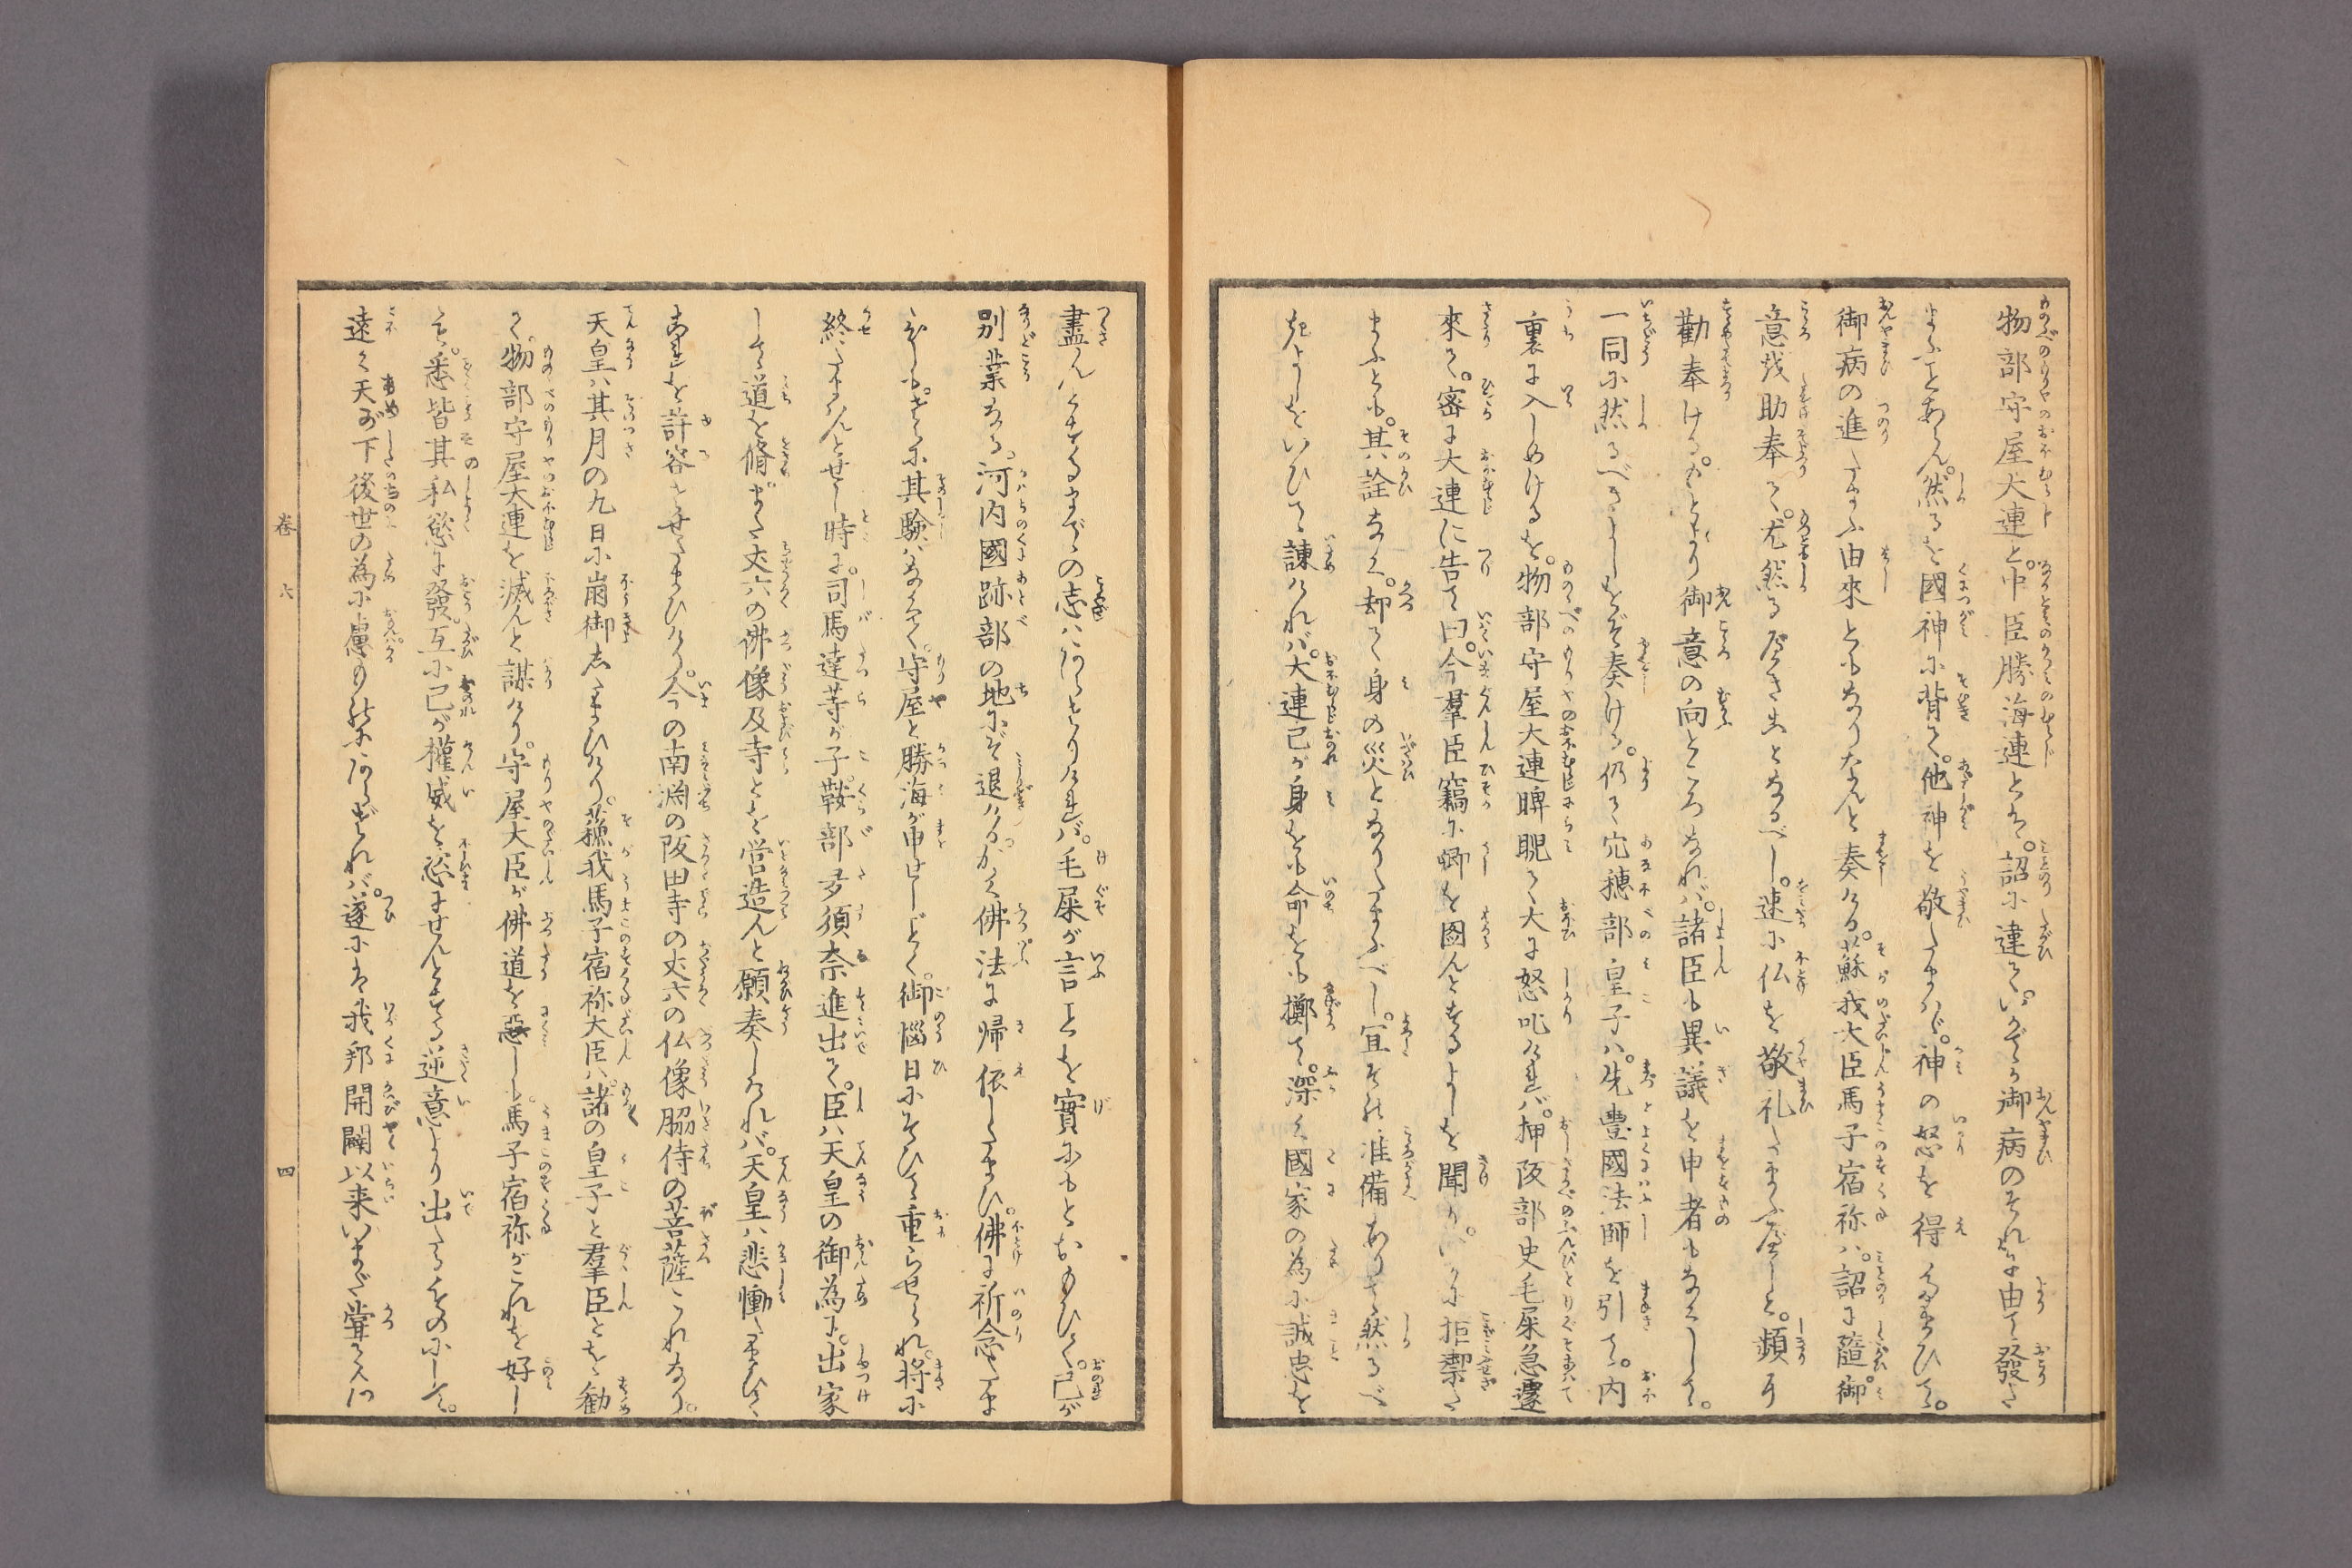 物部守屋大連と。中臣勝海連とは。詔に違て。いかでか御病のそれに由て發た
まふことあらん。然るを國神に背て。他神を敬たまはゞ。神の怒を得たまひて。
御病の進たまふ由來ともなりなんと奏ける。蘇我大臣馬子宿祢ハ。詔に隨御。
意を助奉て。尤然る戸きことなるべし。速に仏を敬礼たまふ戸しと。頻に
勸奉ける。もとより御意の向ところなれバ。諸臣も異議を申者もなくして。
一同に然るべきよしをぞ奏ける。仍て穴穂部皇子ハ。先豊國法師を引て。内
裏に入しめけるを。物部守屋大連睥睨て大に怒叱ければ。押阪部史毛屎急遽
來て。密に大連に告て曰。今羣臣竊に卿を圖んとするよしを聞り。いかに拒禦た
まふとも。其詮なく。却て身の災となりたまふべし。宜その准備ありて然るべ
きよしをいひて諌けれバ。大連己が身をも命をも擲て。深く國家の為に誠忠を
盡んとするまでの志ハあらざりければ。毛屎が言ことを實にもとおもひて。己が
別業なる。河内國跡部の地にぞ退ける。かく佛法に帰依したまひ。佛に祈念たま
ひしも。さらに其驗ハなくて。守屋と勝海が申せしごとく。御惱日にそひて重らせられ。将に
終たまはんとせし時に。司馬達等が子。鞍部多須奈進出て。臣ハ天皇の御為に。出家
して道を脩。また丈六の佛像及寺とを営造んと願奏しけれバ。天皇ハ悲慟たまひて。
これを許容させたまひけり。今の南渕の阪田寺の丈六の仏像脇侍の菩薩これなり。
天皇ハ其月の九日に崩御したまひけり。蘇我馬子宿祢大臣ハ。諸の皇子と羣臣とを勧
て。物部守屋大連を滅んと謀けり。守屋大臣が佛道を惡しも。馬子宿祢がこれを好し
も。悉皆其私慾に發。互に己が權威を恣にせんとする逆意より出たるものにして。
遠く天が下後世の為に慮のりしにはあらざれバ。遂には我邦開闢以来いまだ嘗て人の
卷六
四